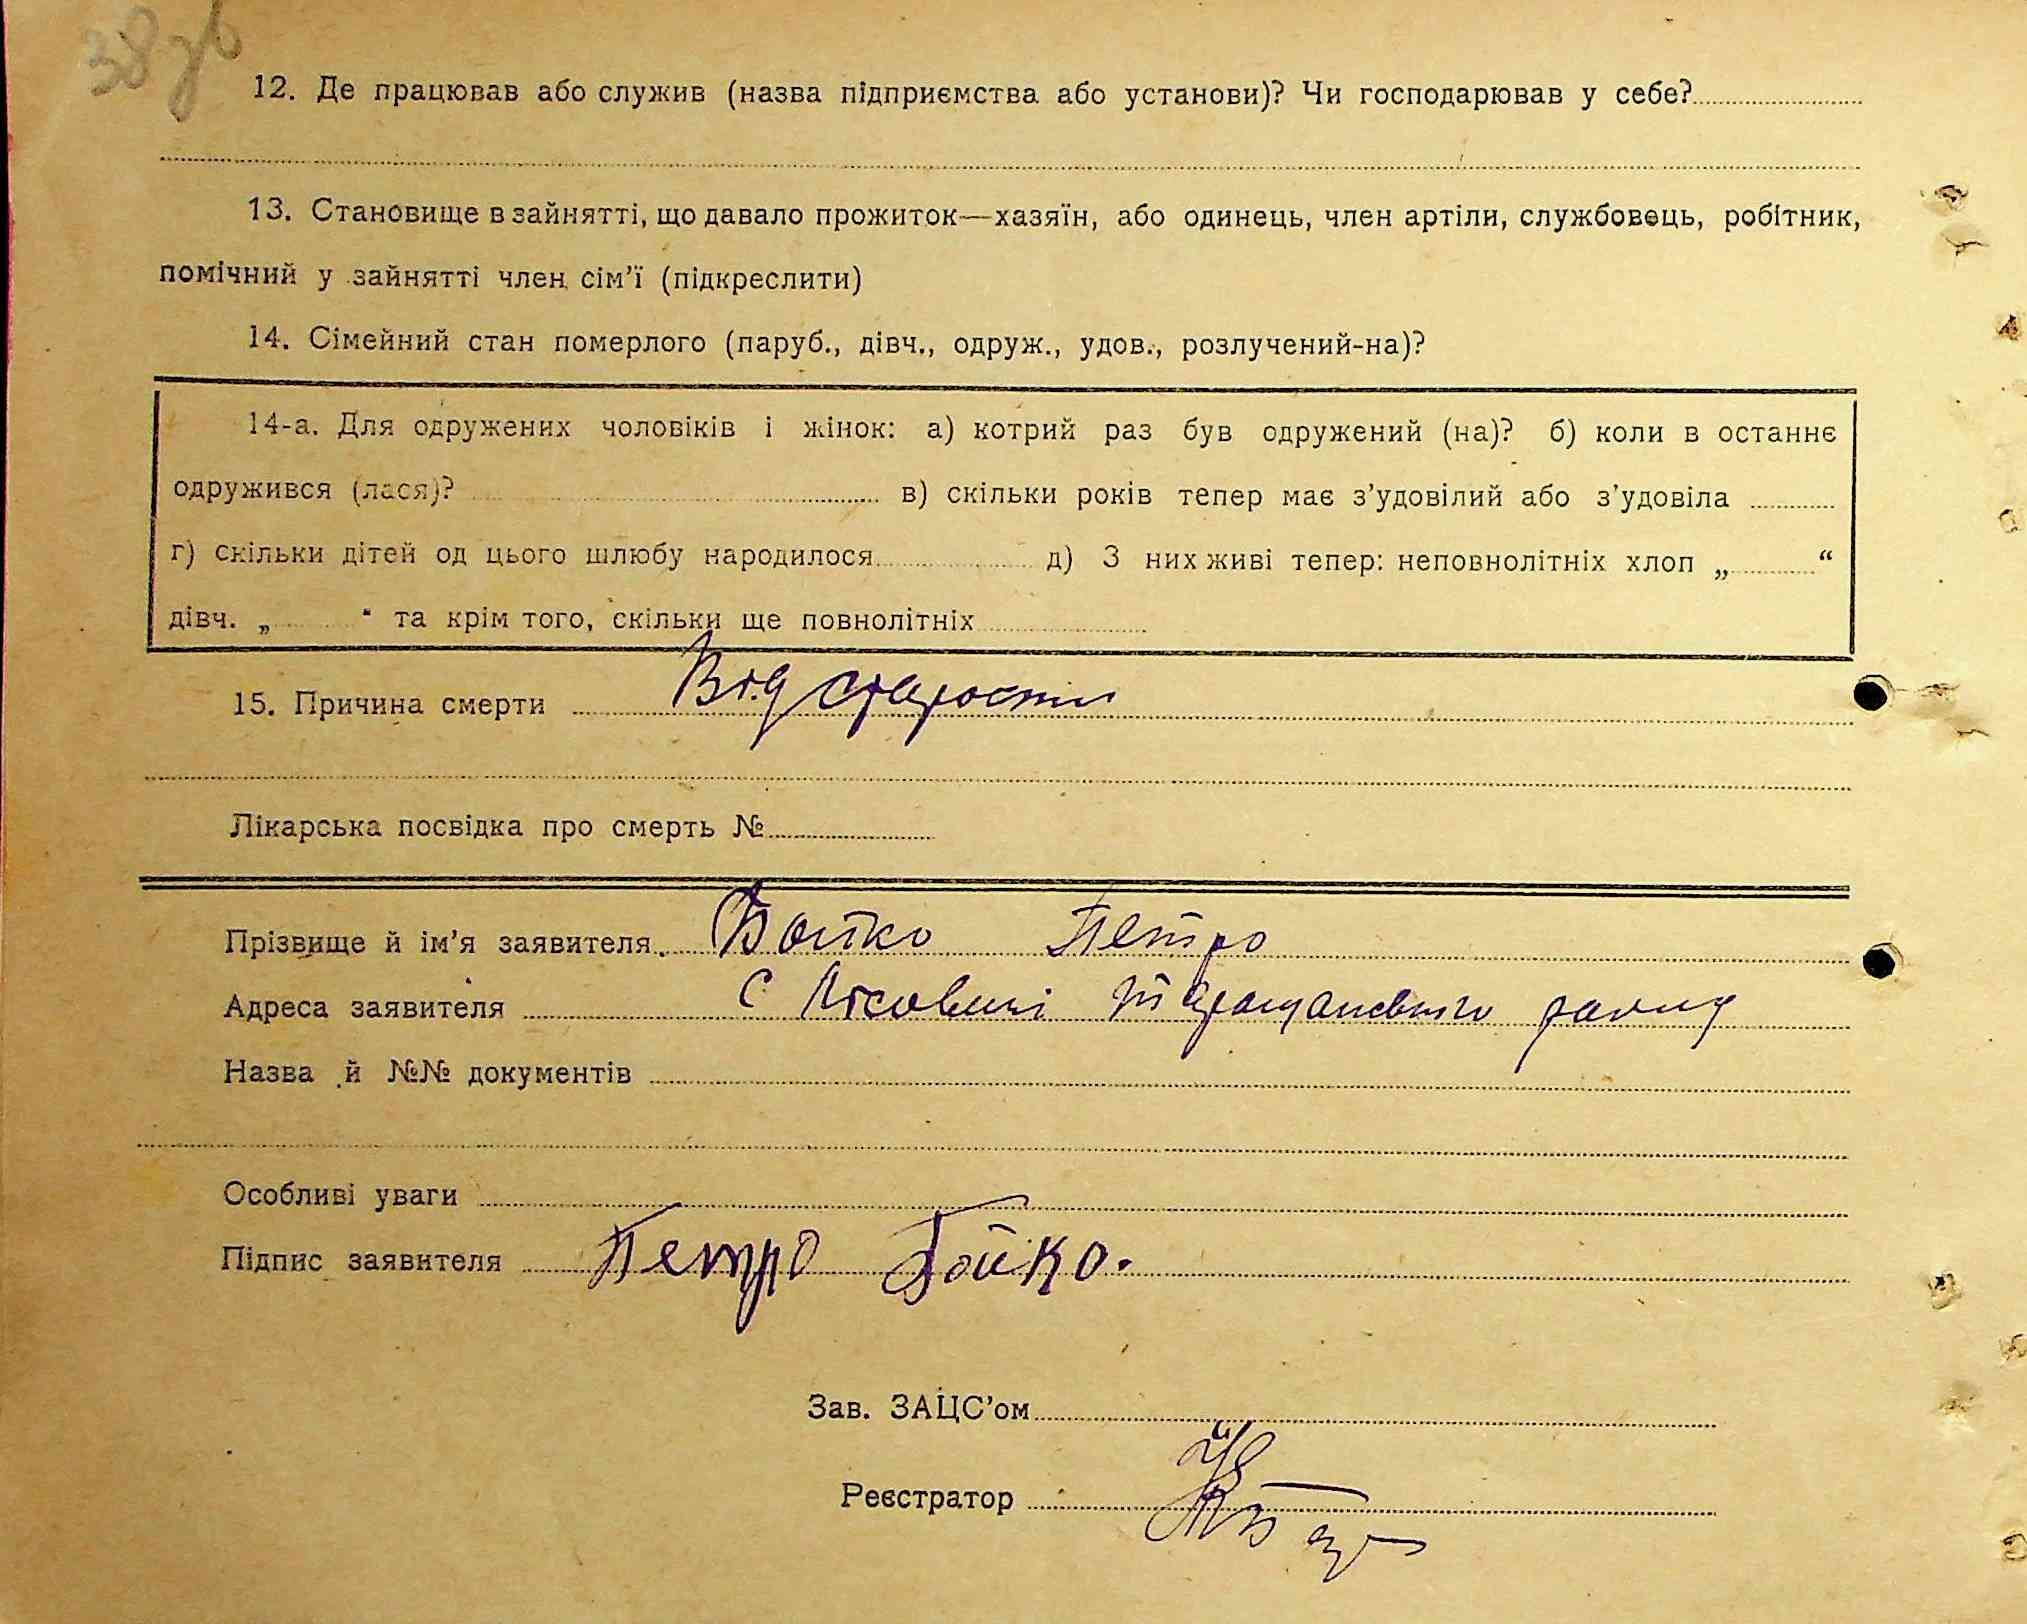 38 зв
12. Де працював або служив (назва підприємства або установи)? Чи господарював у себе?
13. Становище в зайнятті, що давало прожиток—хазяїн, або одинець, член артіли, службовець, робітник,
помічний у зайнятті член сім'ї (підкреслити)
14. Сімейний стан померлого (паруб., дівч., одруж., удов., розлучений-на)?
14-а. Для одружених чоловіків і жінок: а) котрий раз був одружений (на)? б) коли в останнє
одружився (лася)? в) скільки років тепер має з'удовілий або з'удовіла
г) скільки дітей од цього шлюбу народилося д) З них живі тепер: неповнолітніх хлоп „ “
дівч. „ “ та крім того, скільки ще повнолітніх
15. Причина смерти Від старости
Лікарська посвідка про смерть №
Прізвище й ім'я заявителя Бойко Петро
Адреса заявителя с Лісовичі Таращанського району
Назва й №№ документів
Особливі уваги
Підпис заявителя Петро Бойко.
Зав. ЗАЦС'ом
Реєстратор